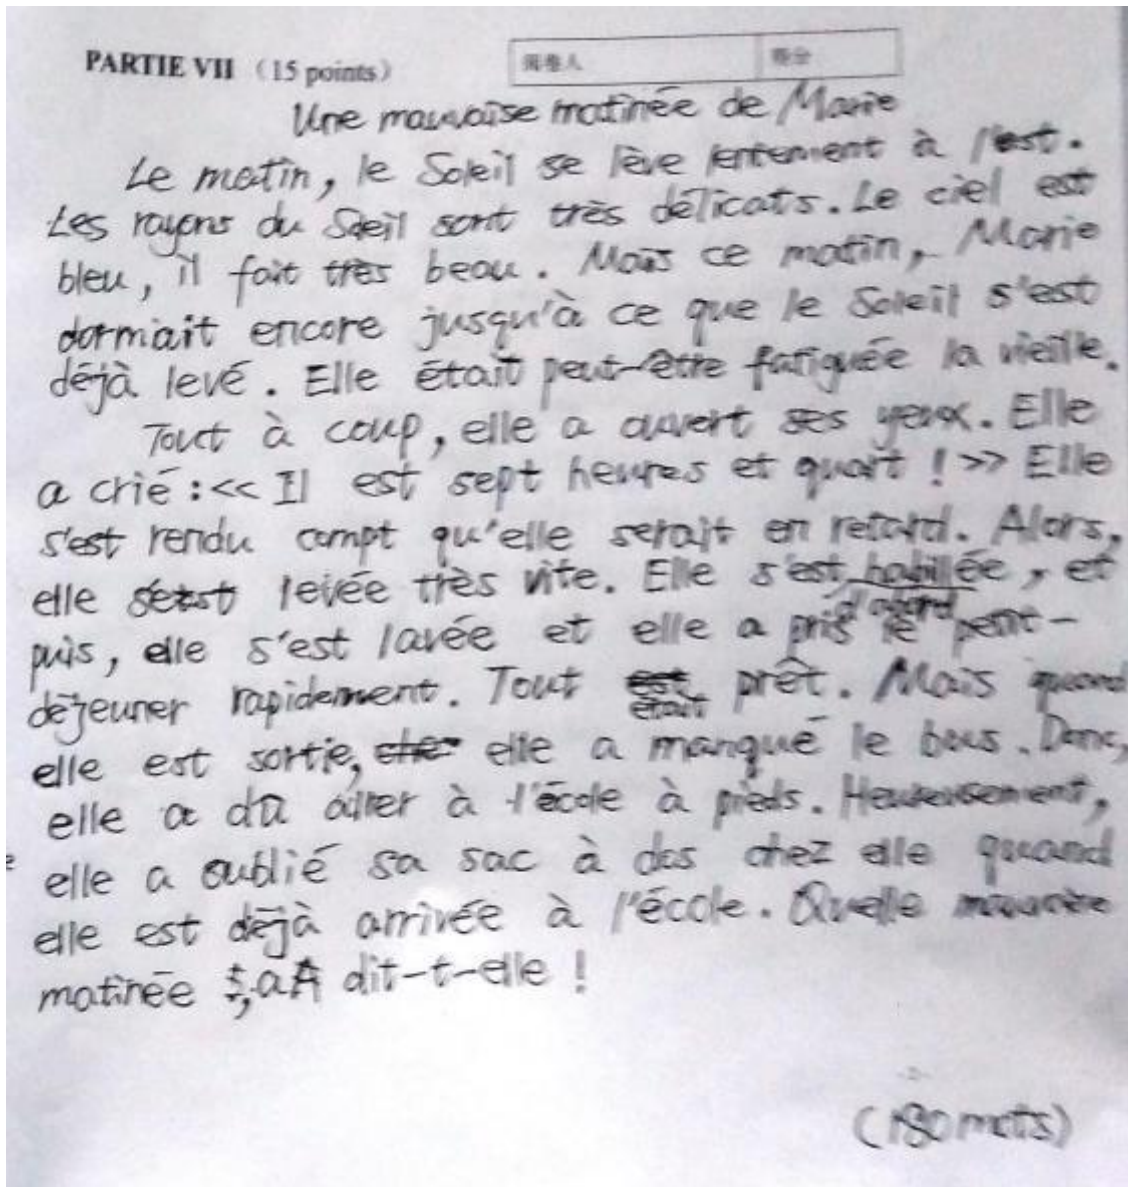 PARTIE VII （15 points）
阅卷人 得分
Une mauvaise matinée de Marie
Le matin, le Soleil se lève lentement à l'est.
Les rayons du Soleil sont très délicats. Le ciel est
bleu, il fait très beau. Mais ce matin, Marie
dormait encore jusqu'à ce que le Soleil s'est
déjà levé. Elle était peut-être fatiguée la vieille.
Tout à coup, elle a ouvert ses yeux. Elle
a crié : << Il est sept heures et quart ! >> Elle
s'est rendu compt qu'elle serait en retard. Alors,
elle s'est levée très vite. Elle s'est habillée, et
puis, elle s'est lavée et elle a pris d'abord le petit-
déjeuner rapidement. Tout était prêt. Mais quand
elle est sortie, elle a manqué le bus. Donc,
elle a dû aller à l'école à pieds. Heureusement,
elle a oublié sa sac à dos chez elle quand
elle est déjà arrivée à l'école. Quelle
matinée , a dit-t-elle !
(180 mots)